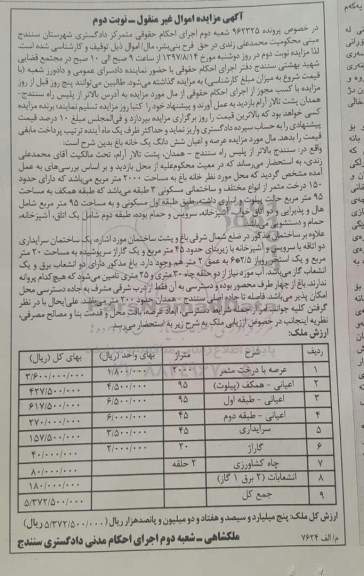 آگهی مزایده اموال غیر منقول ـ نوبت دوم
در خصوص پرونده ۹۶۲۳۳۵ شعبه دوم اجرای احکام حقوقی متمرکز دادگستری شهرستان سنندج
مبنی محکومیت محمدعلی زندی در حق فرح بنی‌بشر، مال/ اموال ذیل توقیف و کارشناسی شده است.
لذا مزایده نوبت دوم در روز دوشنبه مورخ ۱۳۹۷/۸/۱۴ از ساعت ۹ صبح الی ۱۰ صبح در مجتمع قضایی
شهید بهشتی سنندج دفتر اجرای احکام حقوقی با حضور نماینده دادسرای عمومی و دادورز شعبه (با
قیمت شروع به میزان مبلغ کارشناسی) به مزایده گذاشته می‌شود. طالبین می‌توانند پنج روز قبل از روز
مزایده با کسب مجوز از اجرای احکام حقوقی از مال مورد مزایده به آدرس بالاتر از پلیس راه سنندج-
همدان پشت تالار آرام بازدید به عمل آورند و پیشنهاد خود را کتبا روز مزایده تسلیم نمایند؛ برنده مزایده
کسی خواهد بود که بالاترین قیمت را روز برگزاری مزایده بپردازد و فی‌المجلس مبلغ ۱۰ درصد قیمت
پیشنهادی را به حساب سپرده دادگستری واریز نماید و حداکثر ظرف یک ماه آینده ترتیب پرداخت مابقی
قیمت را بدهد. مال مورد مزایده عرصه و اعیان شش دانگ یک خانه باغ بدین شرح است:
واقع در: سنندج بالاتر از پلیس راه سنندج – همدان، پشت تالار آرام، تحت مالکیت آقای محمدعلی
زندی، به استحضار می‌رساند که در معیت محکوم‌علیه از محل بازدید و بر اساس بررسی‌های به عمل
آمده مشخص گردید که محل مورد نظر خانه باغ به مساحت ۲۰۰۰ متر مربع می‌باشد که دارای حدود
۱۵۰ درخت مثمر از انواع مختلف و ساختمانی مسکونی ۳ طبقه می‌باشد که طبقه همکف به مساحت
۹۵ متر مربع حالت پیلوت و انباری داشته، طبق طبقه اول مسکونی و به مساحت ۹۵ متر مربع شامل
هال و پذیرایی و دو اتاق خواب، آشپزخانه، سرویس و حمام بوده، طبقه دوم شامل یک اتاق، آشپزخانه،
حمام و دستشویی می‌باشد.
علاوه بر ساختمان مذکور در ضلع شمال شرقی باغ و پشت ساختمان مورد اشاره، یک ساختمان سرایداری
دو اتاقه با سرویس و آشپزخانه با زیربنای حدود ۴۵ متر مربع و یک گاراژ سرپوشیده به مساحت ۲۰ متر
مربع و یک استخر روباز به عمق ۲ متر هم وجود دارد. باغ مذکور دارای دو انشعاب برق و یک
انشعاب گاز می‌باشد. آب مورد نیاز از دو حلقه چاه ۳۰ متری و ۲۵ متری تامین می‌شود که هیچ کدام پروانه
ندارند. باغ از چهار طرف محصور بوده و دسترسی به آن فقط از درب شرقی مشرف به جاده دسترسی محل
امکان پذیر می‌باشد. فاصله تا جاده اصلی سنندج – همدان حدود ۲۰۰ متر می‌باشد. علی‌ایحال با در نظر
گرفتن کلیه جوانب، موقعیت، شرایط دسترسی، ابعاد عرصه، بافت محل و قدمت بنا و مصالح مصرفی،
نظریه اینجانب در خصوص ارزیابی ملک به شرح زیر به استحضار می‌رسد.
ارزش ملک:
ردیف شرح متراژ بهای واحد (ریال) بهای کل (ریال)
۱ عرصه با درخت مثمر ۲۰۰۰ ۱/۸۰۰/۰۰۰ ۳/۶۰۰/۰۰۰/۰۰۰
۲ اعیانی – همکف (پیلوت) ۹۵ ۴/۵۰۰/۰۰۰ ۴۲۷/۵۰۰/۰۰۰
۳ اعیانی – طبقه اول ۹۵ ۶/۵۰۰/۰۰۰ ۶۱۷/۵۰۰/۰۰۰
۴ اعیانی – طبقه دوم ۴۵ ۶/۰۰۰/۰۰۰ ۲۷۰/۰۰۰/۰۰۰
۵ سرایداری ۴۵ ۳/۵۰۰/۰۰۰ ۱۵۷/۵۰۰/۰۰۰
۶ گاراژ ۲۰ ۲/۰۰۰/۰۰۰ ۴۰/۰۰۰/۰۰۰
۷ چاه کشاورزی ۲ حلقه ۸۰/۰۰۰/۰۰۰
۸ انشعابات (۲ برق ۱ گاز) ۱۸۰/۰۰۰/۰۰۰
۹ جمع کل ۵/۳۷۲/۵۰۰/۰۰۰
ارزش کل ملک: پنج میلیارد و سیصد و هفتاد و دو میلیون و پانصدهزار ریال (۵/۳۷۲/۵۰۰/۰۰۰ ریال)
م/الف ۷۶۲۴
ملکشاهی ـ شعبه دوم اجرای احکام مدنی دادگستری سنندج